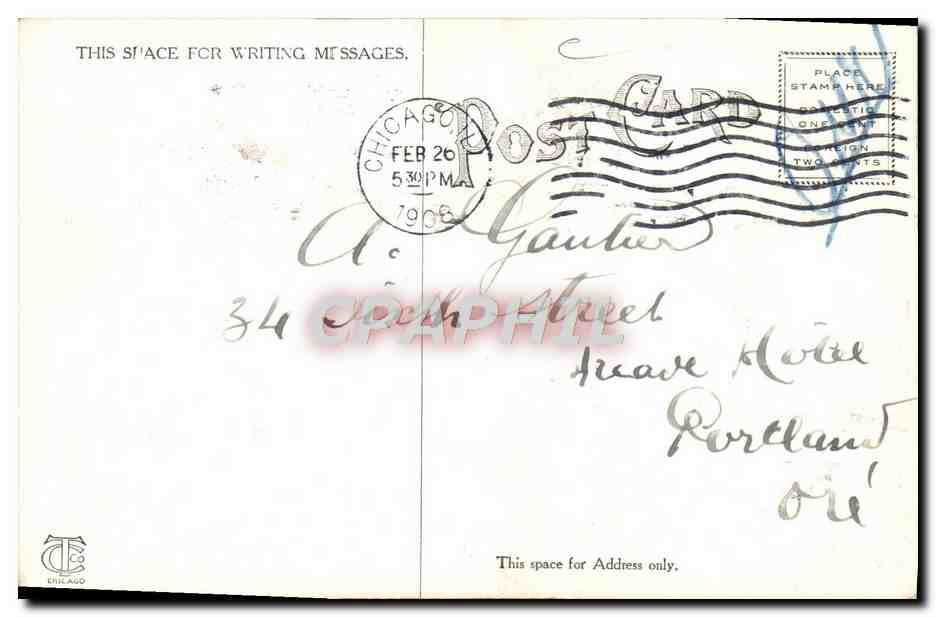 THIS SPACE FOR WRITING MESSAGES.
POST CARD
PLACE
STAMP HERE
DOMESTIC
ONE CENT
FOREIGN
TWO CENTS
CHICAGO, ILL
FEB 26
5 30 PM
1908
A. Gautier
34 Sixth Street
CPAPHIL
Arcade Hôtel
Portland
Oré
This space for Address only.
CTCO
CHICAGO